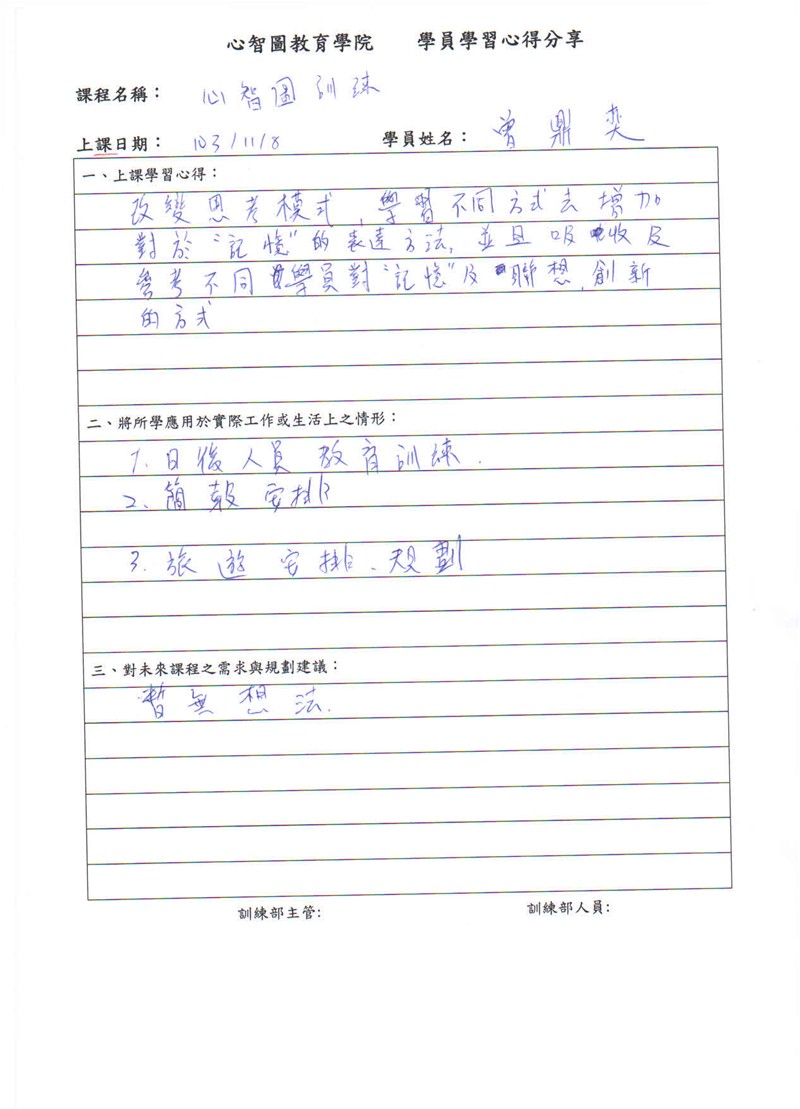 心智圖教育學院 學員學習心得分享
課程名稱： 心智圖訓練
上課日期： 103/11/8 學員姓名： 曾鼎奕
一、上課學習心得：
改變思考模式,學習不同方式去增加
對於"記憶"的表達方法,並且吸收及
參考不同學員對"記憶"及聯想,創新
的方式
二、將所學應用於實際工作或生活上之情形：
1. 日後人員教育訓練.
2. 簡報安排
3. 旅遊安排、規劃
三、對未來課程之需求與規劃建議：
暫無想法.
訓練部主管: 訓練部人員: